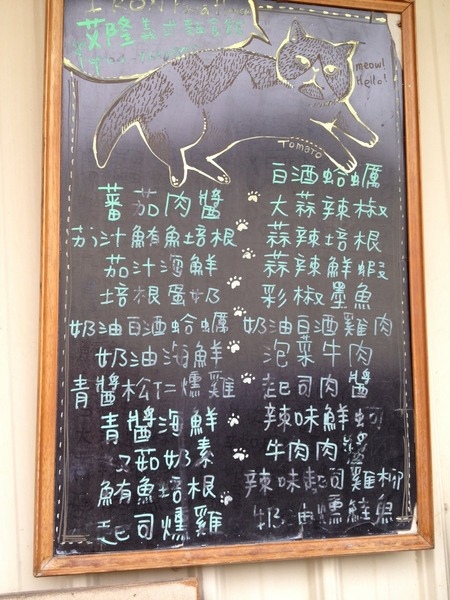 IRON
艾隆義式麵食館
meow!
Hello!
Tomato
蕃茄肉醬
茄汁鮪魚培根
茄汁海鮮
培根蛋奶
奶油白酒蛤蠣
奶油海鮮
青醬松仁燻雞
青醬海鮮
菇奶素
鮪魚培根
起司燻雞
白酒蛤蠣
大蒜辣椒
蒜辣培根
蒜辣鮮蝦
彩椒墨魚
奶油白酒雞肉
泡菜牛肉
起司肉醬
辣味鮮蚵
牛肉肉醬
辣味起司雞柳
奶油燻鮭魚